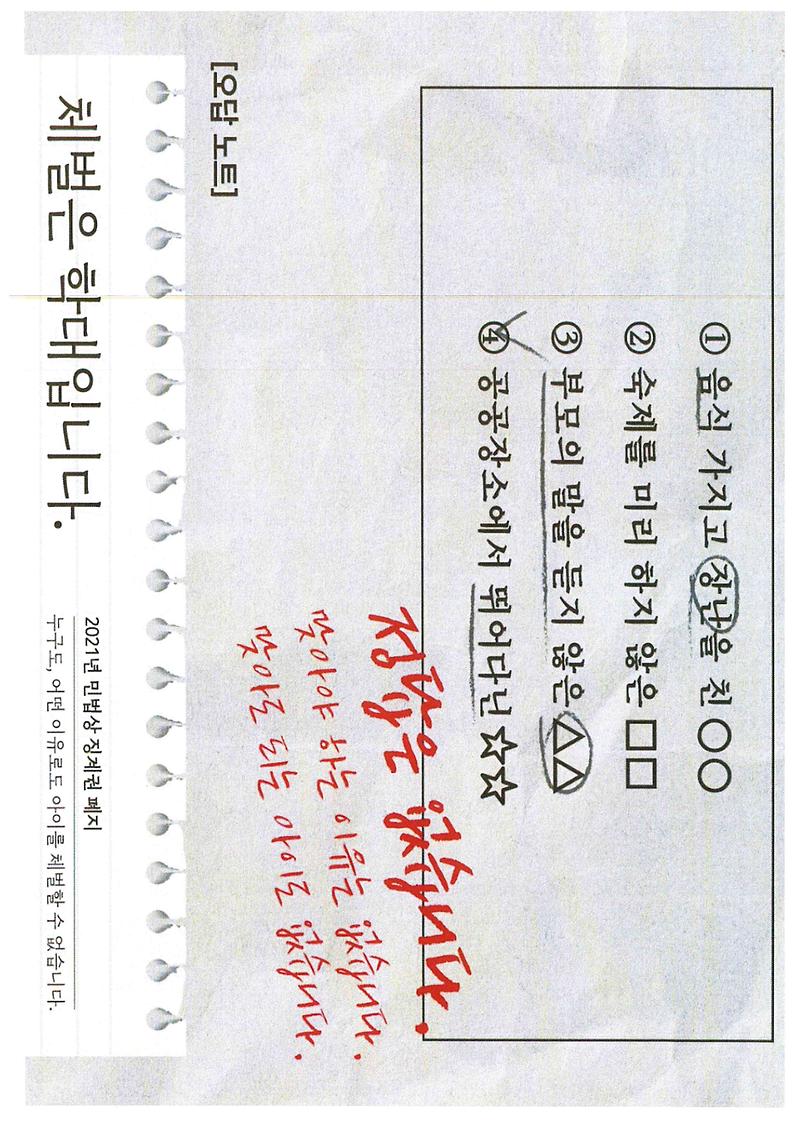 ① 음식 가지고 장난을 친 ○○
② 숙제를 미리 하지 않은 □□
③ 부모의 말을 듣지 않은 △△
④ 공공장소에서 뛰어다닌 ☆☆
정답은 없습니다.
맞아야 하는 이유는 없습니다.
맞아도 되는 아이도 없습니다.
[오답 노트]
체벌은 학대입니다.
2021년 민법상 징계권 폐지
누구도, 어떤 이유로도 아이를 체벌할 수 없습니다.